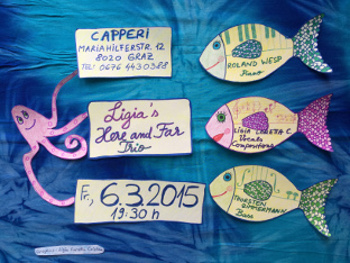 CAPPERI
MARIAHILFERSTR. 12
8020 GRAZ
TEL: 0676 4430388
Ligia's
Here and Far
Trio
Fr., 6.3.2015
19:30 h
ROLAND WESP
Piano
LIGIA LORETA C.
Vocals
Compositions
THORSTEN
ZIMMERMANN
Bass